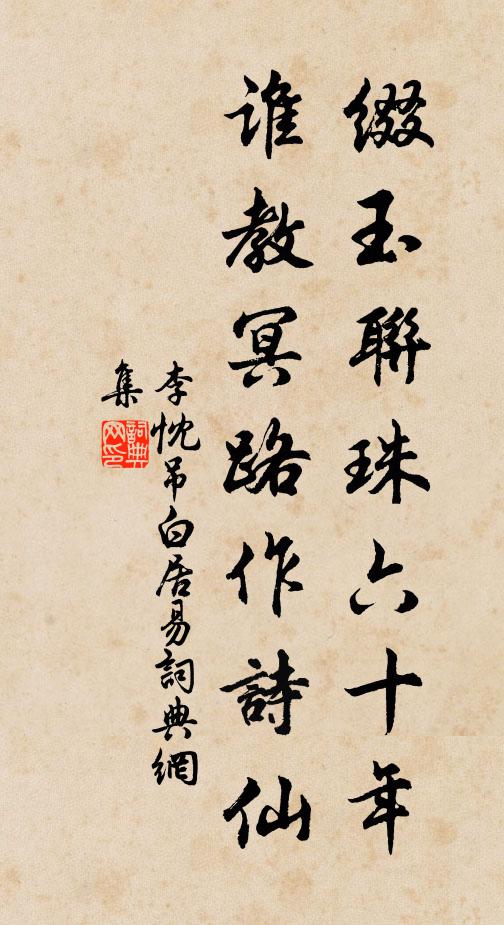 綴玉聯珠六十年
誰教冥路作詩仙
李忱吊白居易詞典網
集
詞典
网印